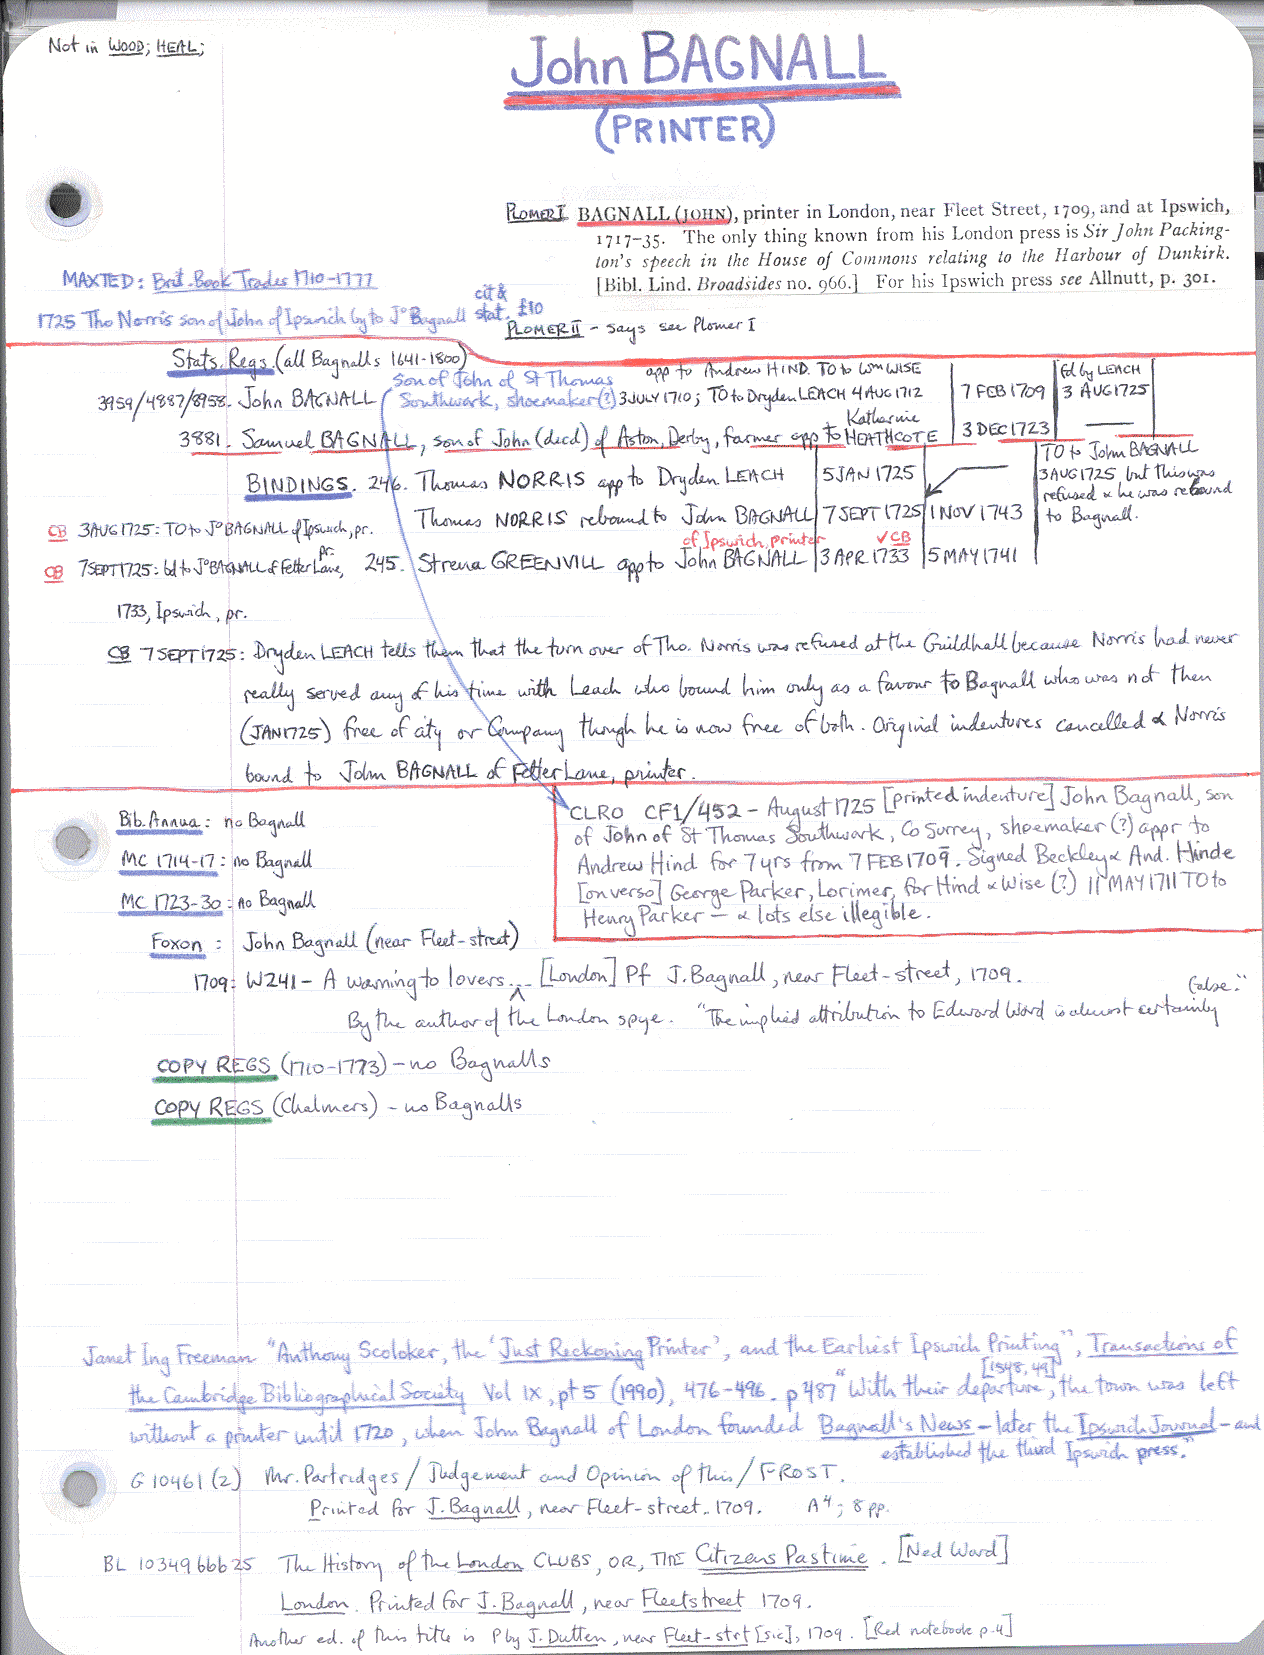 Not in WOOD; HEAL;
John BAGNALL
(PRINTER)
PLOMER I BAGNALL (JOHN), printer in London, near Fleet Street, 1709, and at Ipswich,
1717–35. The only thing known from his London press is Sir John Packing-
ton's speech in the House of Commons relating to the Harbour of Dunkirk.
[Bibl. Lind. Broadsides no. 966.] For his Ipswich press see Allnutt, p. 301.
MAXTED: Brit. Book Trades 1710-1777
1725 Tho Norris son of John of Ipswich by to Jo Bagnall cit & stat. £10
PLOMER II - says see Plomer I
Stats. Regs. (all Bagnalls 1641-1800)
son of John of St Thomas
Southwark, shoemaker(?)
app to Andrew HIND. TO to Wm WISE
3959/4887/8958. John BAGNALL 3 JULY 1710; TO to Dryden LEACH 4 AUG 1712 7 FEB 1709 fd by LEACH 3 AUG 1725
3881. Samuel BAGNALL, son of John (decd) of Aston, Derby, farmer app to Katharine HEATHCOTE 3 DEC 1723 ——
BINDINGS. 246. Thomas NORRIS app to Dryden LEACH 5 JAN 1725
TO to John BAGNALL
3 AUG 1725 but this was
refused & he was rebound
to Bagnall.
Thomas NORRIS rebound to John BAGNALL 7 SEPT 1725 1 NOV 1743
of Ipswich, printer ✓CB
CB 3 AUG 1725: TO to Jo BAGNALL of Ipswich, pr.
CB 7 SEPT 1725: bd to Jo BAGNALL of Fetter Lane, pr.
245. Strena GREENVILL app to John BAGNALL 3 APR 1733 5 MAY 1741
1733, Ipswich, pr.
CB 7 SEPT 1725: Dryden LEACH tells them that the turn over of Tho. Norris was refused at the Guildhall because Norris had never
really served any of his time with Leach who bound him only as a favour to Bagnall who was not then
(JAN 1725) free of city or Company though he is now free of both. Original indentures cancelled & Norris
bound to John BAGNALL of Fetter Lane, printer.
Bib. Annua: no Bagnall
MC 1714-17: no Bagnall
MC 1723-30: no Bagnall
CLRO CF1/452 - August 1725 [printed indenture] John Bagnall, son
of John of St Thomas Southwark, Co Surrey, shoemaker (?) appr to
Andrew Hind for 7 yrs from 7 FEB 1709. Signed Beckley & And. Hinde
[on verso] George Parker, Lorimer, for Hind & Wise (?) 11 MAY 1711 TO to
Henry Parker — & lots else illegible.
Foxon: John Bagnall (near Fleet-street)
1709: W241 - A warning to lovers... [London] Pf J. Bagnall, near Fleet-street, 1709.
By the author of the London spye. "The implied attribution to Edward Ward is almost certainly false."
COPY REGS (1710-1773) - no Bagnalls
COPY REGS (Chalmers) - no Bagnalls
Janet Ing Freeman "Anthony Scoloker, the 'Just Reckoning Printer', and the Earliest Ipswich Printing", Transactions of
the Cambridge Bibliographical Society Vol IX, pt 5 (1990), 476-496. p 487 "With their departure [1548, 49], the town was left
without a printer until 1720, when John Bagnall of London founded Bagnall's News - later the Ipswich Journal - and
established the third Ipswich press."
G 10461 (2) Mr. Partridges / Judgement and Opinion of this / FROST.
Printed for J. Bagnall, near Fleet-street. 1709. A⁴; 8 pp.
BL 10349 bbb 25 The History of the London CLUBS, OR, THE Citizens Pastime. [Ned Ward]
London. Printed for J. Bagnall, near Fleetstreet 1709.
Another ed. of this title is P by J. Dutten, near Fleet-strt [sic], 1709. [Red notebook p.4]